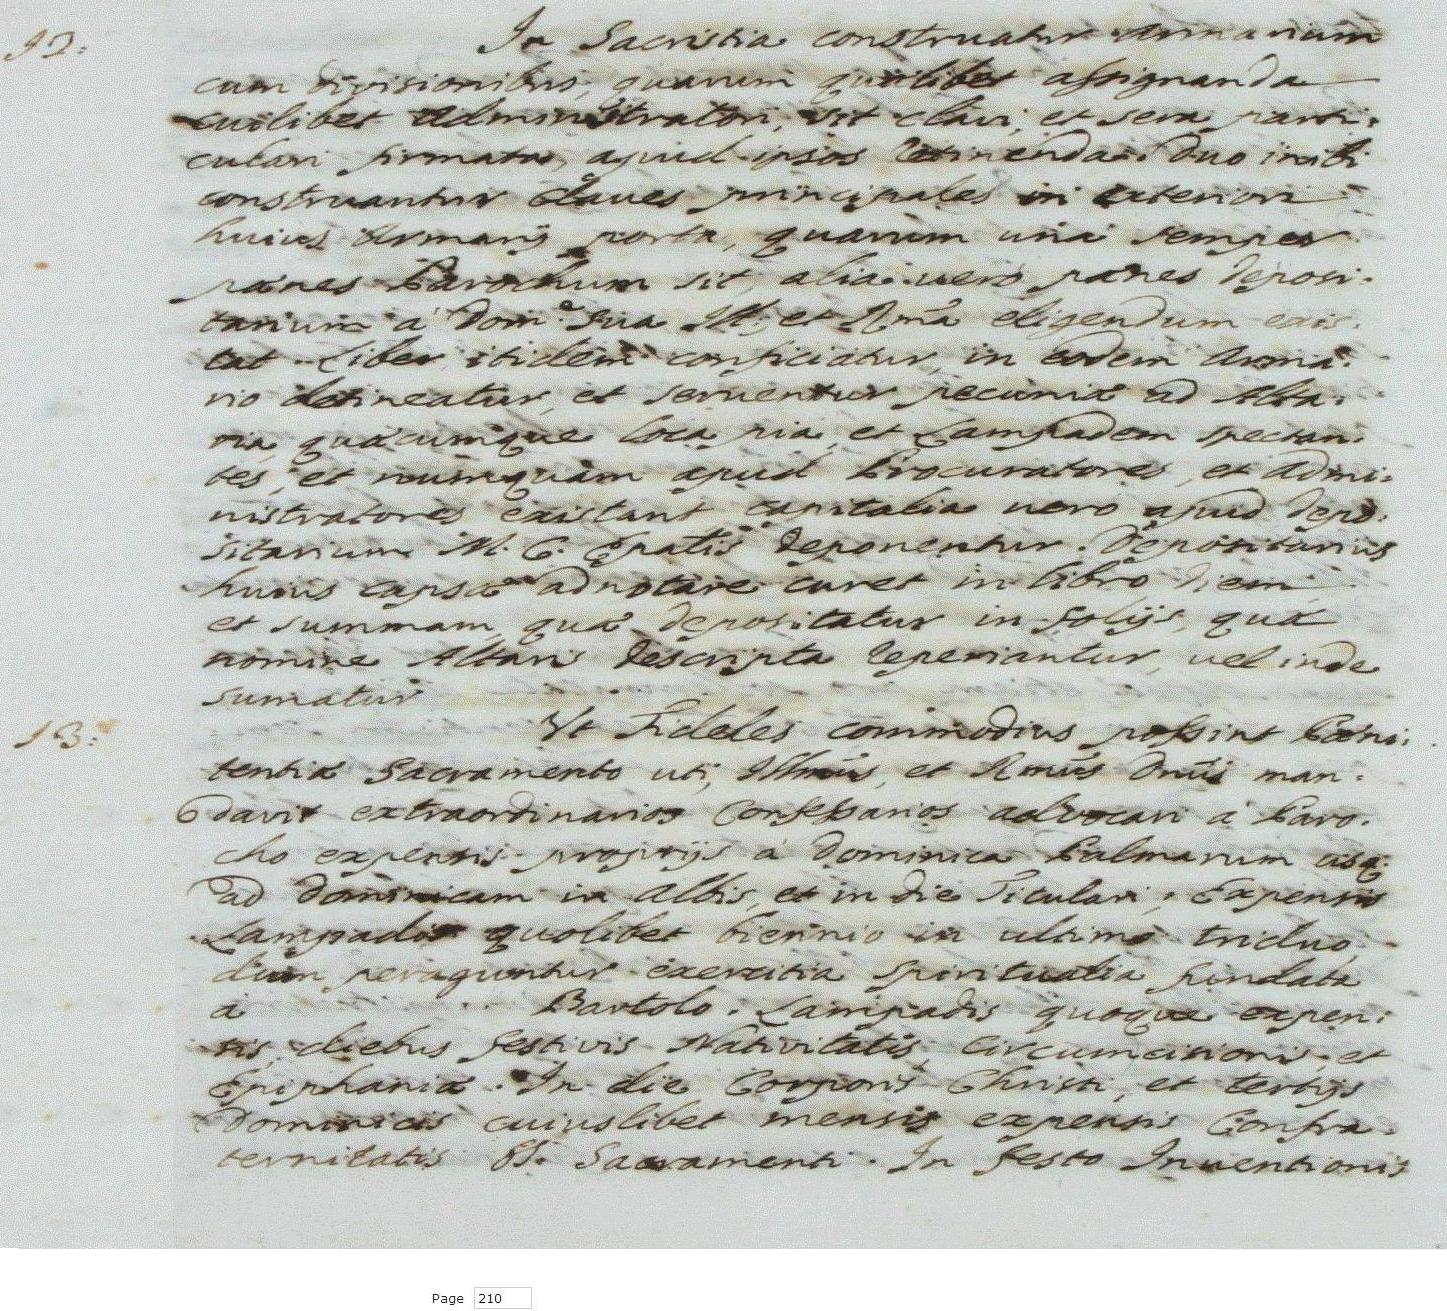 12:
In Sacristia construatur Armarium
cum divisionibus, quarum quælibet assignanda
cuilibet Administratori, sit clavi, et sera parti-
culari firmata, apud ipsos retinenda. Duo inibi
construantur Claves principales in exteriori
huius Armarij porta, quarum una semper
pænes Parochum sit, alia uero pænes deposi-
tarium a Dom.e Sua Ill: et Rma eligendum exis-
tat. Liber itidem conficiatur, in eodem Arma-
rio detineatur, et seruentur pecuniæ ad Alta-
ria, quæcumque loca pia, et Lampadem spectan-
tes, et numquam apud Procuratores, et Admi-
nistratores existant capitalia uero apud Depo-
sitarium M. C. Epalis deponentur. Depositarius
huius capsæ adnotare curet in libro diem,
et summam, quæ depositatur in folijs, quæ
nomine Altaris descripta reperiantur, uel inde
sumatur
13:
Vt Fideles commodius possint Pœni-
tentiæ Sacramento uti, Illmus, et Rmus Dnus man-
davit extraordinarios Confessarios advocari a Paro-
cho expensis proprijs a Dominica Palmarum usq:
ad Dominicam in Albis, et in die Titulari; Expensis
Lampadis quolibet biennio in ultimo triduo,
dum peraguntur exercitia spiritualia fundata
a Bartolo. Lampadis quoque expen-
sis, diebus festivis Nativitatis, Circumcisionis, et
Epiphaniæ. In die Corporis Christi, et tertijs
Dominicis cuiuslibet mensis expensis Confra-
ternitatis SS. Sacramenti. In festo Inuentionis
Page 210